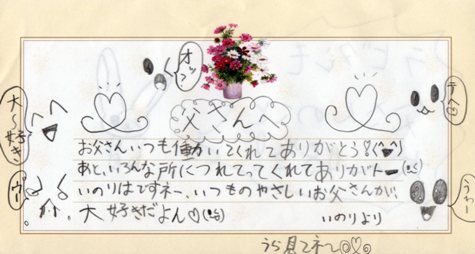 オッ
テヘ
大〜好き
父さんへ
お父さんいつも働いてくれてありがとう!
あと、いろんな所につれてってくれてありがト―
いのりはですネー、いつものやさしいお父さんが、
大好きだよん♡
いのりより
うら見てネ〜